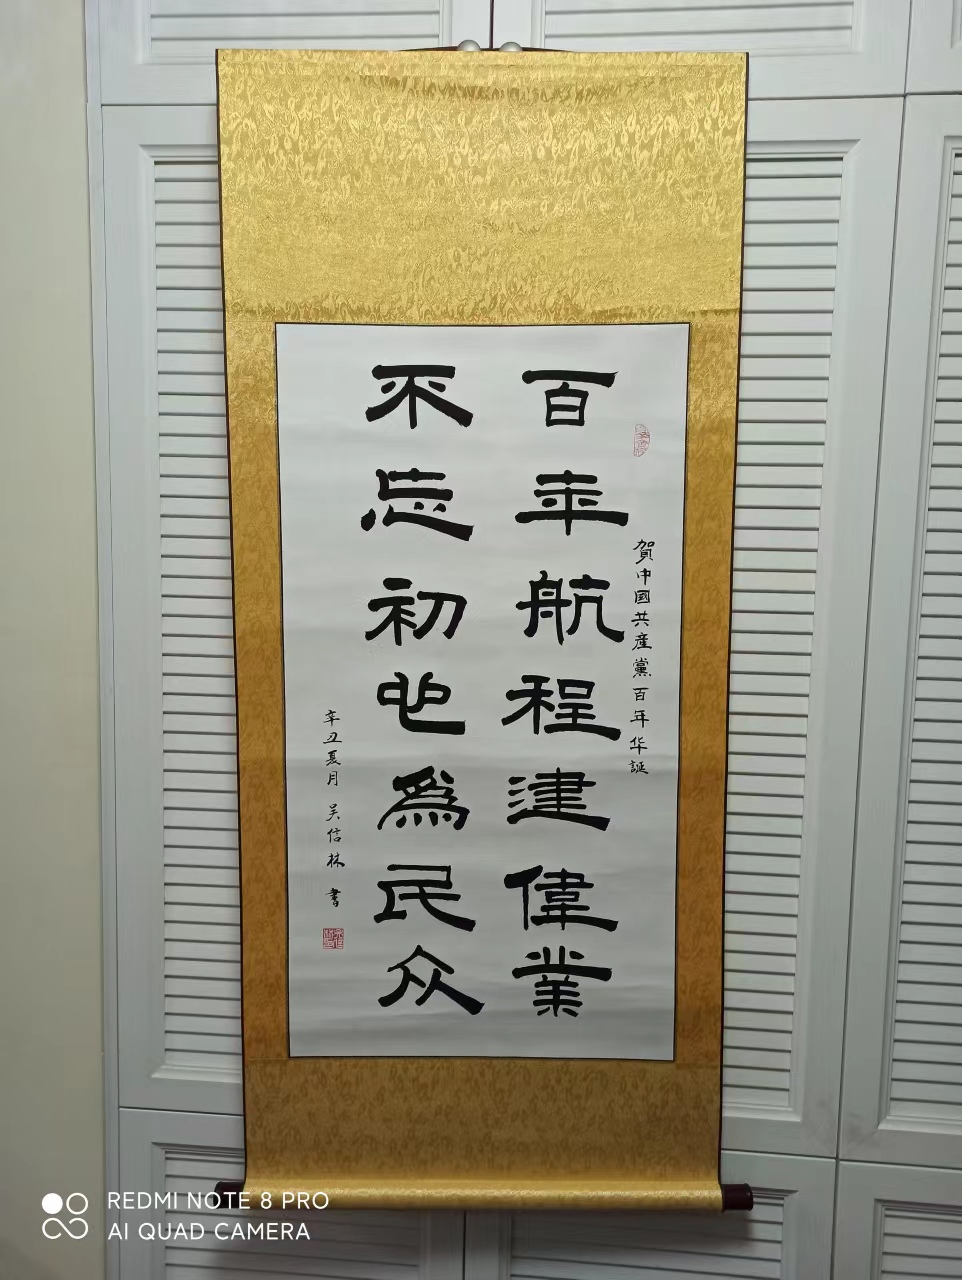 賀中國共產黨百年华誕
百年航程建偉業
不忘初心為民众
辛丑夏月 吴信林 書
REDMI NOTE 8 PRO
AI QUAD CAMERA